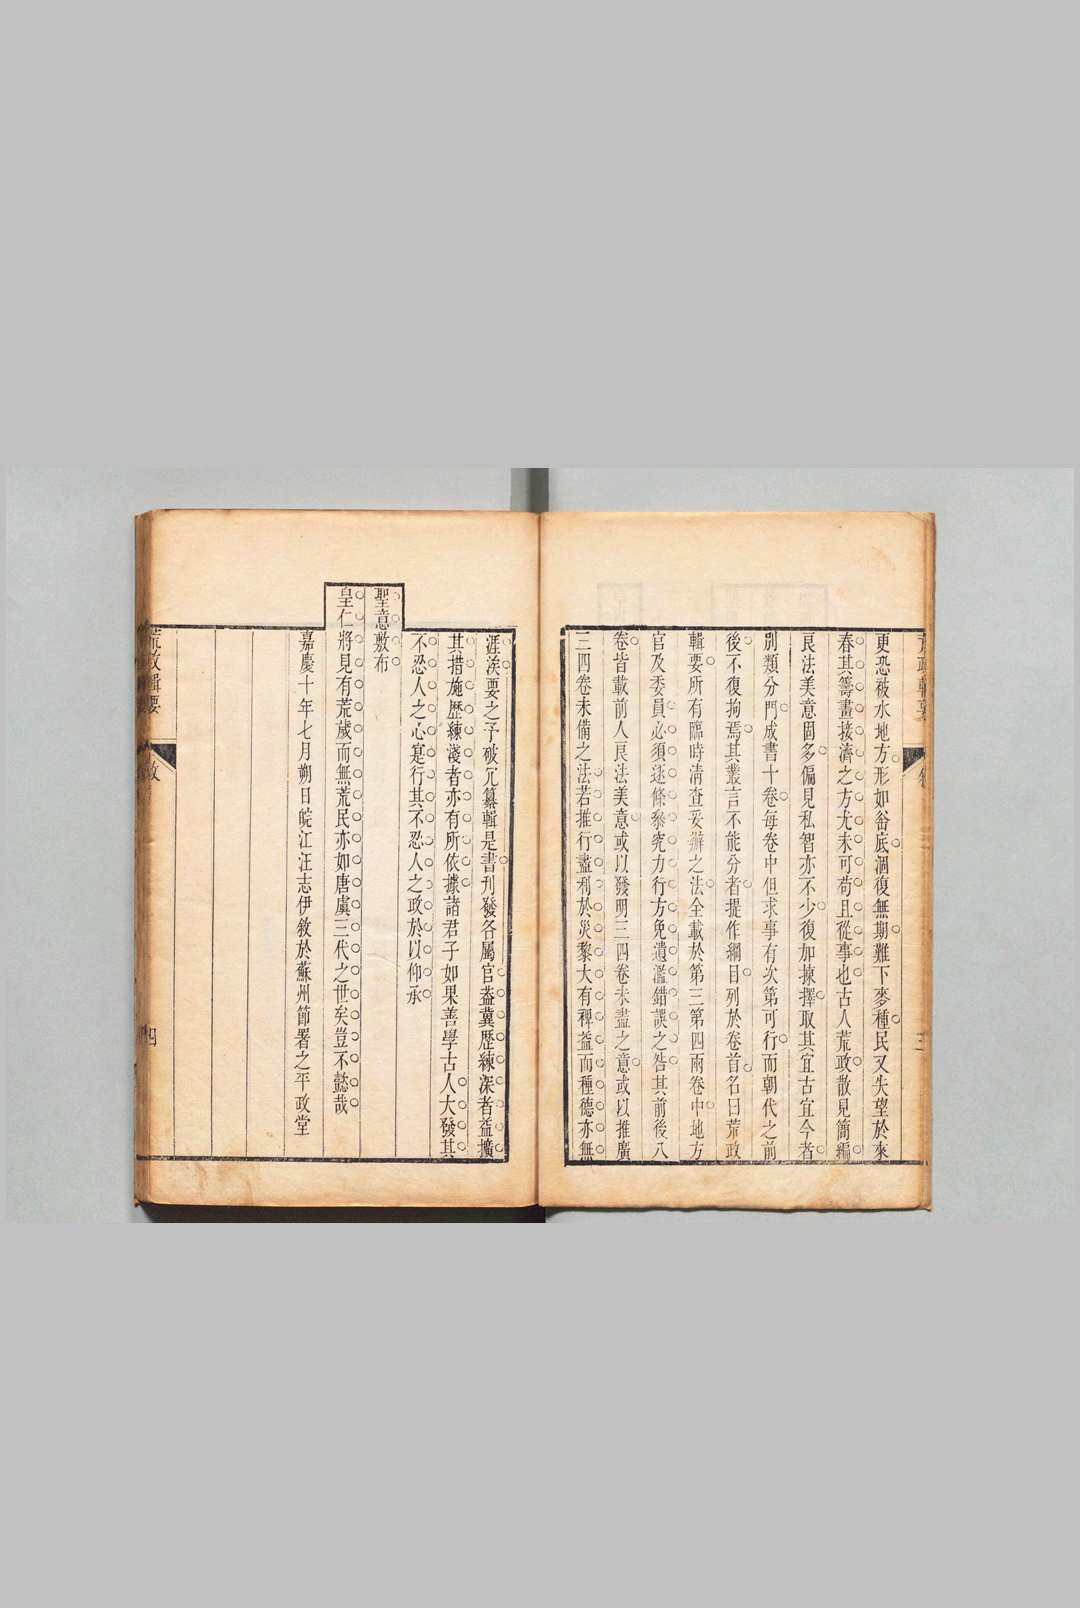 更恐被水地方形如釡底涸復無期難下麥種民又失望於來
春其籌畫接濟之方尤未可苟且從事也古人荒政散見簡編
良法美意固多偏見私智亦不少復加揀擇取其宜古宜今者
別類分門成書十卷每卷中但求事有次第可行而朝代之前
後不復拘焉其叢言不能分者提作綱目列於卷首名曰荒政
輯要所有臨時清查妥辦之法全載於第三第四兩卷中地方
官及委員必須逐條叅究力行方免遺濫錯誤之咎其前後八
卷皆載前人良法美意或以發明三四卷未盡之意或以推廣
三四卷未備之法若推行盡利於災黎大有裨益而種德亦無
涯涘要之予破冗纂輯是書刊發各屬官葢冀歷練深者益擴
其措施歷練淺者亦有所依據諸君子如果善學古人大發其
不忍人之心寔行其不忍人之政於以仰承
聖意敷布
皇仁將見有荒歲而無荒民亦如唐虞三代之世矣豈不懿哉
嘉慶十年七月朔日皖江汪志伊敘於蘇州節署之平政堂
荒政輯要
四